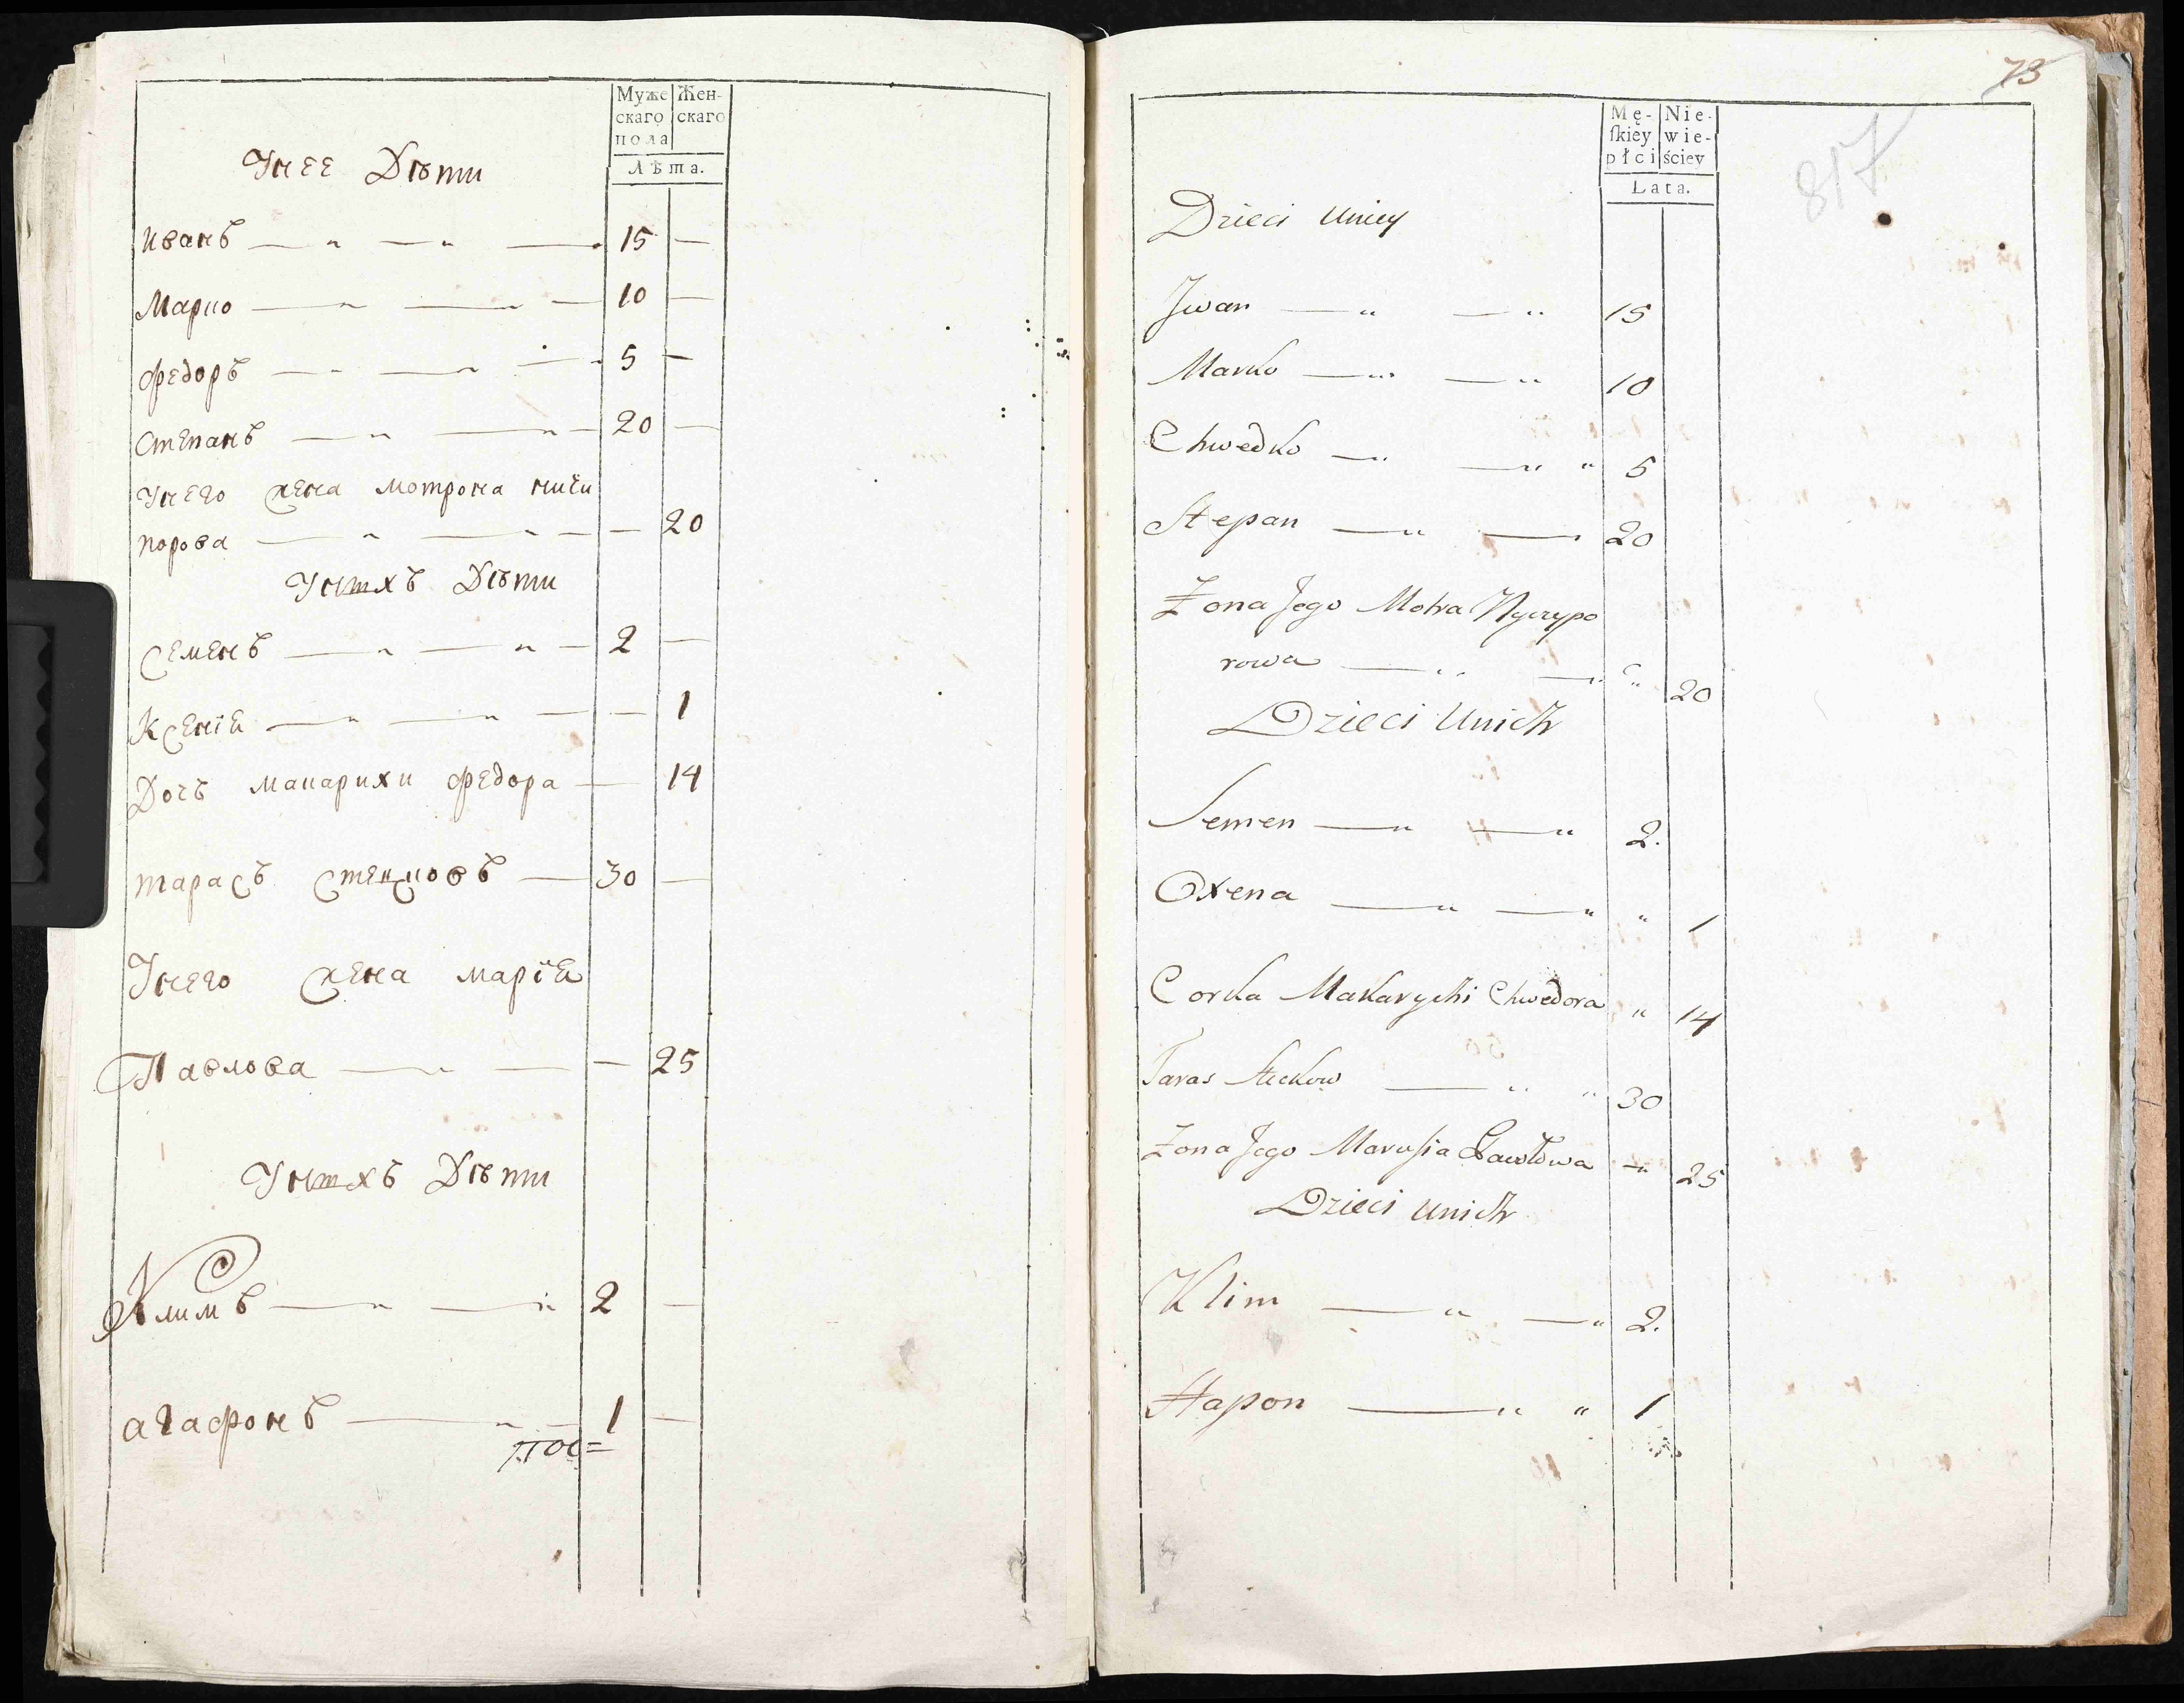 Муже Жен-
скаго скаго
пола
Лѣта.
Унее Дѣти
Иванъ 15 —
Марко 10 —
Федоръ 5 —
Степанъ 20 —
Унего жена мотрона ничи
порова — 20
Унихъ Дѣти
Семенъ 2 —
Ксенія — 1
Дочь макарихи Федора — 14
Тарасъ Стецковъ 30 —
Унего жена марія
Павлова — 25
Унихъ Дѣти
Климъ 2 —
агафонъ 1 —
73
817
Mę- Nie-
ſkiey wie-
płci ściey
Lata.
Dzieci Uniey
Jwan 15
Marko 10
Chwedko 5
Stepan 20
Żona Jego Motra Nyczypo
rowa " 20
Dzieci Unich
Semen 2.
Oxena " 1
Corka Makarychi Chwedora " 14
Taras Steckow 30
Żona Jego Marusia Pawłowa " 25
Dzieci Unich
Klim 2.
Hapon 1